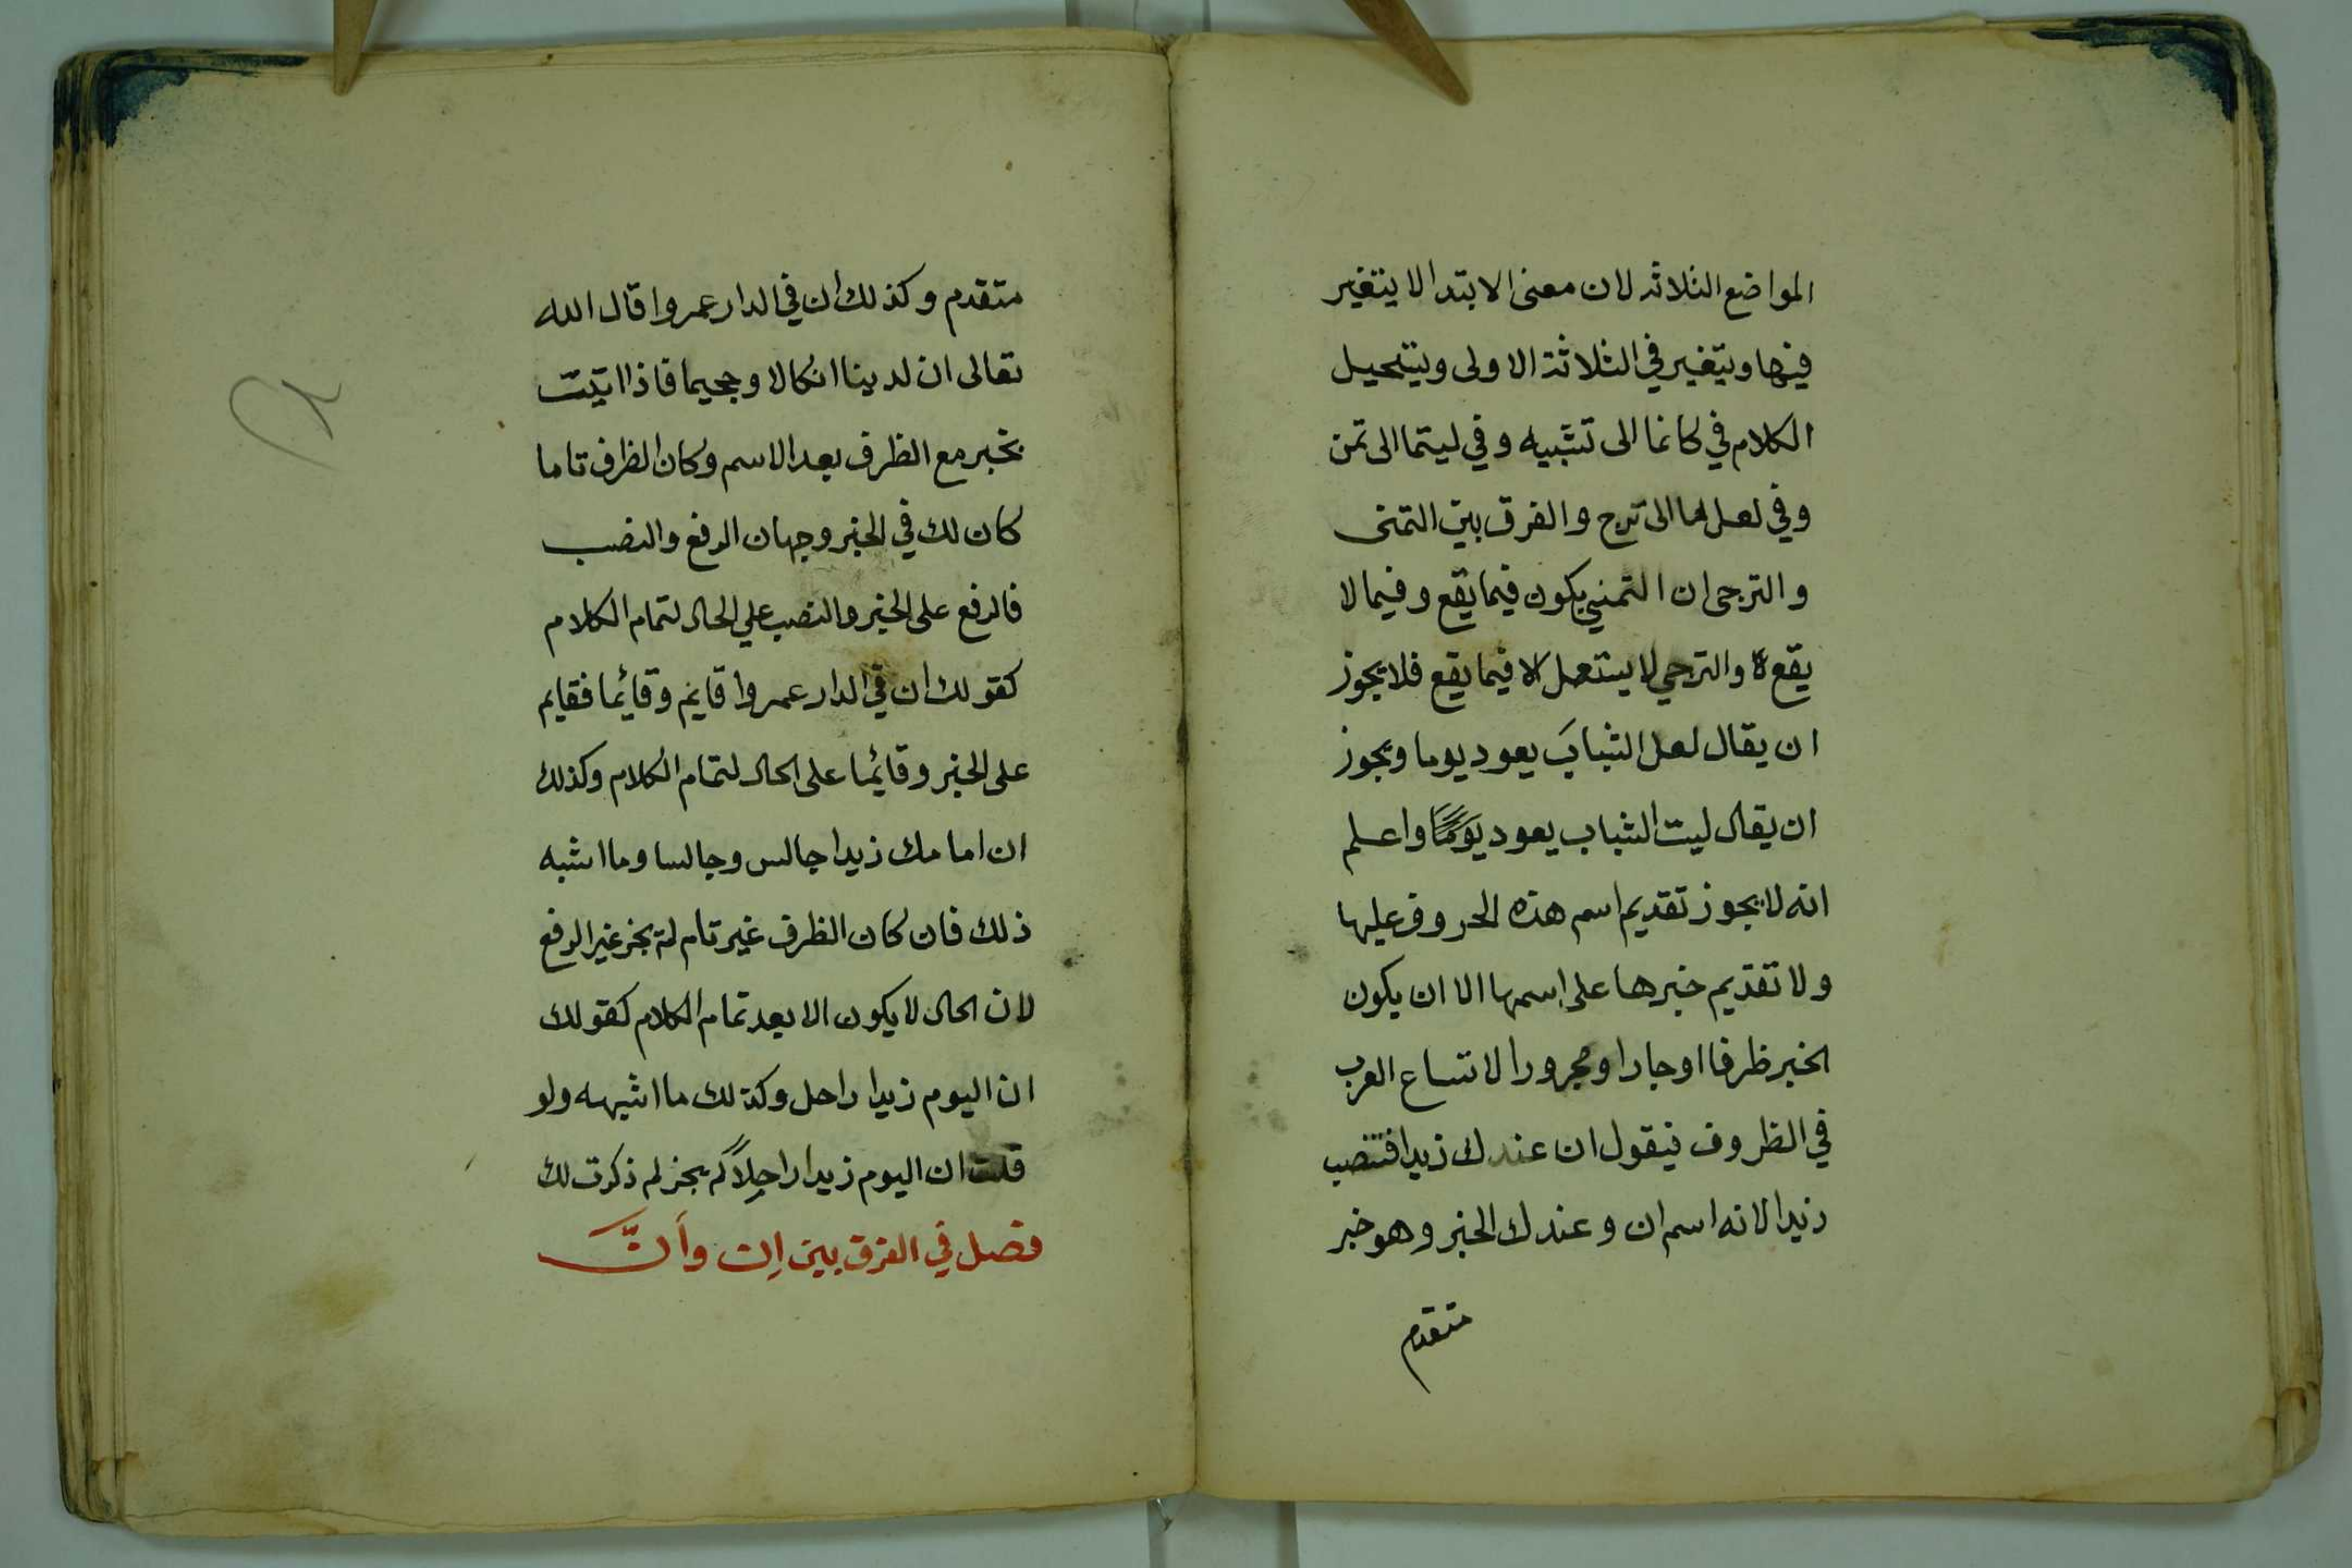 المواضع الثلاثه لان معنى الابتدا لا يتغير
فيها ويتغير في الثلاثة الاولى ويستحيل
الكلام في كانما الى تشبيه وفي ليتما الى تمن
وفي لعل ما الى ترج والفرق بين التمنى
والترجى ان التمني يكون فيما يقع وفيما لا
يقع والترجي لا يستعمل الا فيما يقع فلا يجوز
ان يقال لعل الشبابَ يعود يوما ويجوز
ان يقال ليت الشباب يعود يومًا واعلم
انه لا يجوز تقديم اسم هذه الحروف عليها
ولا تقديم خبرها على اسمها الا ان يكون
الخبر ظرفا او جارا ومجرورا لاتساع العرب
في الظروف فيقول ان عندك زيدا فتنصب
زيدا لانه اسم ان وعندك الخبر وهو خبر
متقدم
متقدم وكذلك ان في الدار عمروا قال الله
تعالى ان لدينا انكالا وجحيما فاذا اتيت
بخبر مع الظرف بعد الاسم وكان الظرف تاما
كان لك في الخبر وجهان الرفع والنصب
فالرفع على الخبر والنصب علي الحال لتمام الكلام
كقولك ان في الدار عمروا قايم وقائما فقايم
على الخبر وقائما على الحال لتمام الكلام وكذلك
ان امامك زيدا جالس وجالسا وما اشبه
ذلك فان كان الظرف غير تام لم يجز غير الرفع
لان الحال لا يكون الا بعد تمام الكلام كقولك
ان اليوم زيدا راحل وكذلك ما اشبهه ولو
قلت ان اليوم زيدا راحلاً لم يجز لم ذكرت لك
فصل في الفرق بين اِن وأنَّ